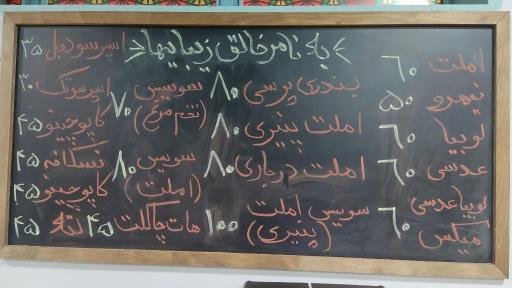 به نام خالق زیباییها
املت ۶۰
نیمرو ۵۰
لوبیا ۶۰
عدسی ۶۰
لوبیا عدسی
میکس ۶۰
بندری پرسی ۸۰
املت پنیری ۸۰
املت درباری ۸۰
سوسیس املت
(پنیری) ۱۰۰
سوسیس
(تخم مرغ) ۷۰
سوسیس
(املت) ۸۰
هات چاکلت ۴۵
اسپرسو دوبل ۳۵
اسپرسو تک ۳۰
کاپوچینو ۴۵
نسکافه ۴۵
کاپوچینو ۴۵
۴۵